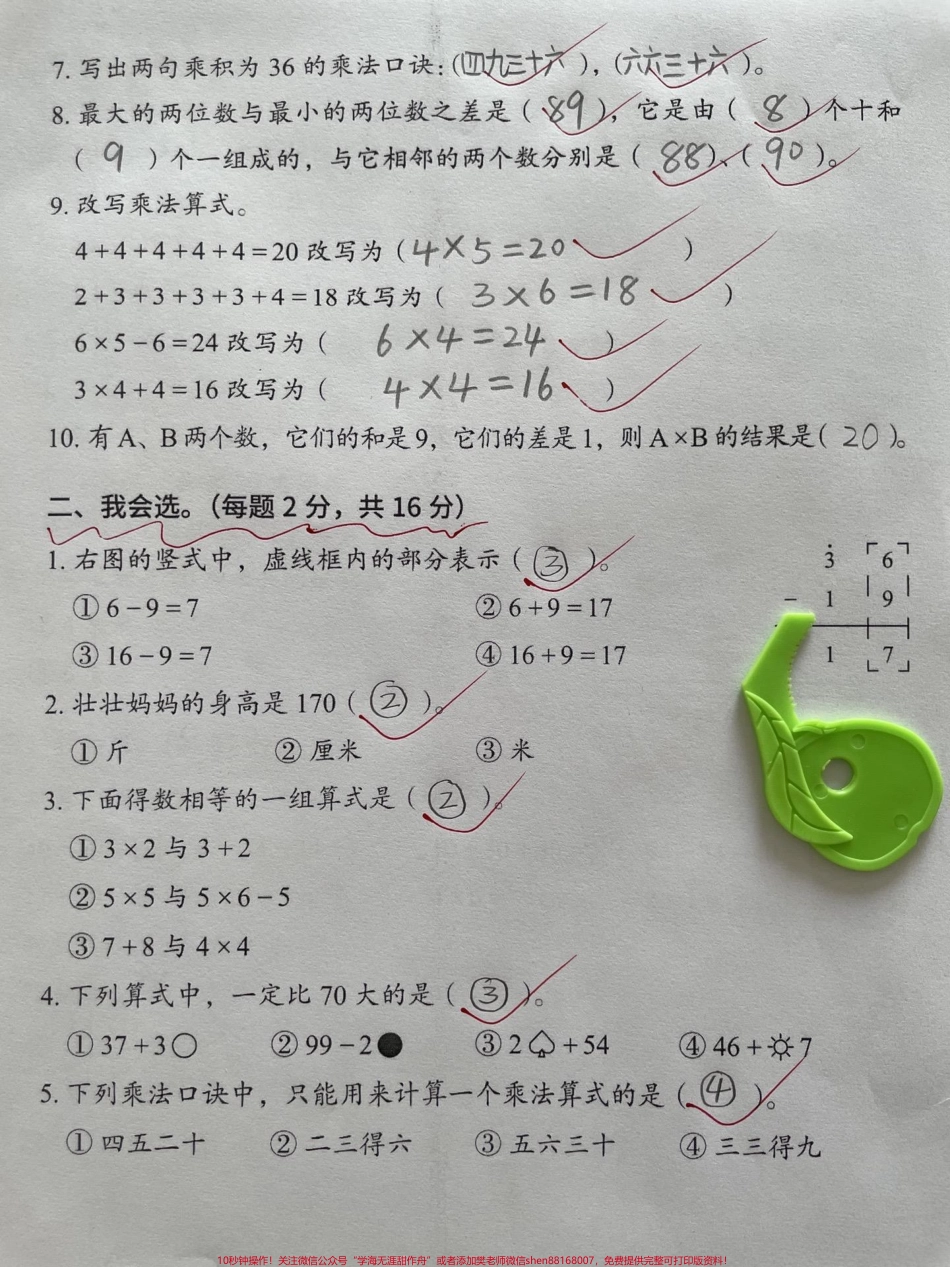 7. 写出两句乘积为 36 的乘法口诀:(四九三十六),(六六三十六)。
8. 最大的两位数与最小的两位数之差是( 89 ),它是由( 8 )个十和
( 9 )个一组成的,与它相邻的两个数分别是( 88 )、( 90 )。
9. 改写乘法算式。
4+4+4+4+4=20 改写为(4×5=20 )
2+3+3+3+3+4=18 改写为( 3×6=18 )
6×5-6=24 改写为( 6×4=24 )
3×4+4=16 改写为( 4×4=16 )
10. 有 A、B 两个数,它们的和是 9,它们的差是 1,则 A×B 的结果是( 20 )。
二、我会选。(每题 2 分,共 16 分)
1. 右图的竖式中,虚线框内的部分表示( ③ )。
① 6-9=7 ② 6+9=17
③ 16-9=7 ④ 16+9=17
3 6
- 1 9
1 7
2. 壮壮妈妈的身高是 170( ② )。
① 斤 ② 厘米 ③ 米
3. 下面得数相等的一组算式是( ② )。
① 3×2 与 3+2
② 5×5 与 5×6-5
③ 7+8 与 4×4
4. 下列算式中,一定比 70 大的是( ③ )。
① 37+3○ ② 99-2● ③ 2♤+54 ④ 46+☼7
5. 下列乘法口诀中,只能用来计算一个乘法算式的是( ④ )。
① 四五二十 ② 二三得六 ③ 五六三十 ④ 三三得九
10秒钟操作!关注微信公众号“学海无涯甜作舟”或者添加樊老师微信shen88168007,免费提供完整可打印版资料!